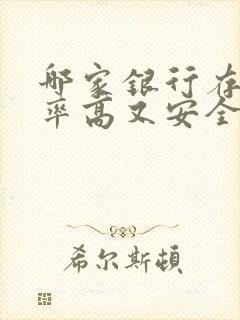 哪家银行存
率高又安全
希尔斯顿